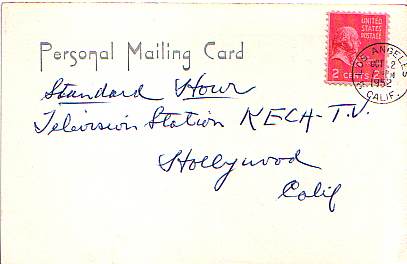 UNITED
STATES
POSTAGE
2 CENTS 2
LOS ANGELES
OCT 2
PM
1952
CALIF.
Personal Mailing Card
Standard Hour
Television Station KECA-T.V.
Hollywood
Calif